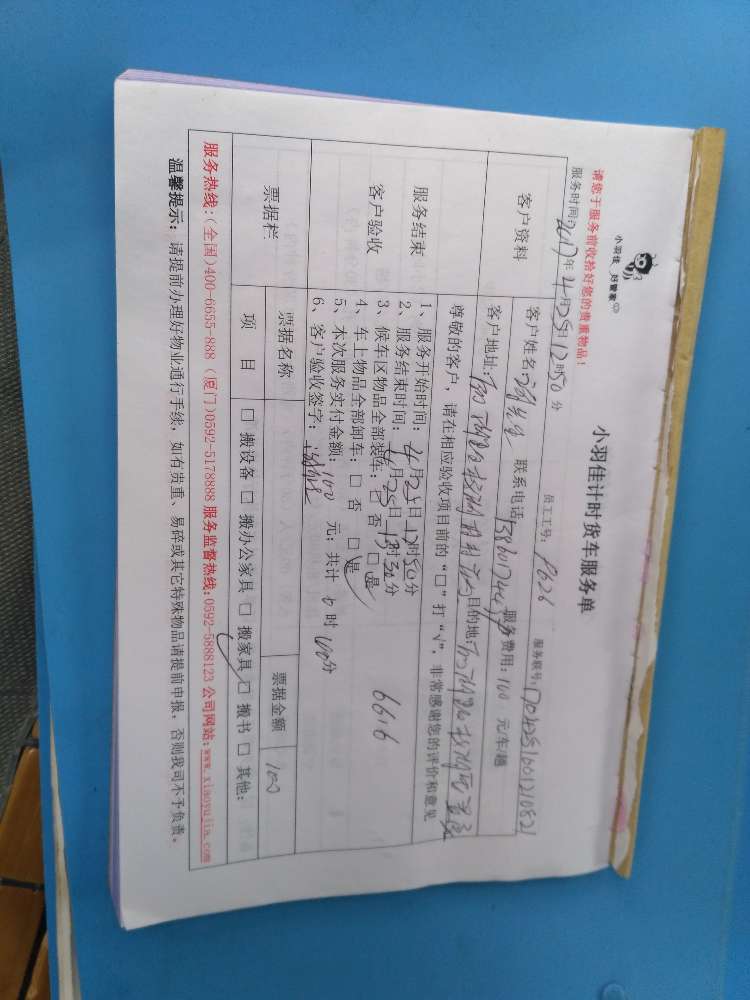 小羽佳 好管家
小羽佳计时货车服务单
请您于服务前收拾好您的贵重物品!
员工工号: P626
服务联号:
服务时间: 2017年4月25日12时50分
客户资料
客户姓名 先生 联系电话 服务费用: 100 元/车/趟
客户地址: 目的地:
尊敬的客户, 请在相应验收项目前的“□”打“√”, 非常感谢您的评价和意见
服务结束
客户验收
1、服务开始时间: 4月25日12时50分
2、服务结束时间: 4月25日13时30分
3、候车区物品全部装车: □ 否 □ 是
4、车上物品全部卸车: □ 否 □ 是
5、本次服务实付金额: 100 元; 共计 0 时 40分
6、客户验收签字:
6616
票据栏
票据名称
票据金额 100
项 目
□ 搬设备 □ 搬办公家具 □ 搬家具 □ 搬书 □ 其他:
服务热线:(全国)400-6655-888 (厦门)0592-5178888 服务监督热线:0592-5888123 公司网站:www.xiaoyujia.com
温馨提示: 请提前办理好物业通行手续, 如有贵重、易碎或其它特殊物品请提前申报, 否则我司不予负责。